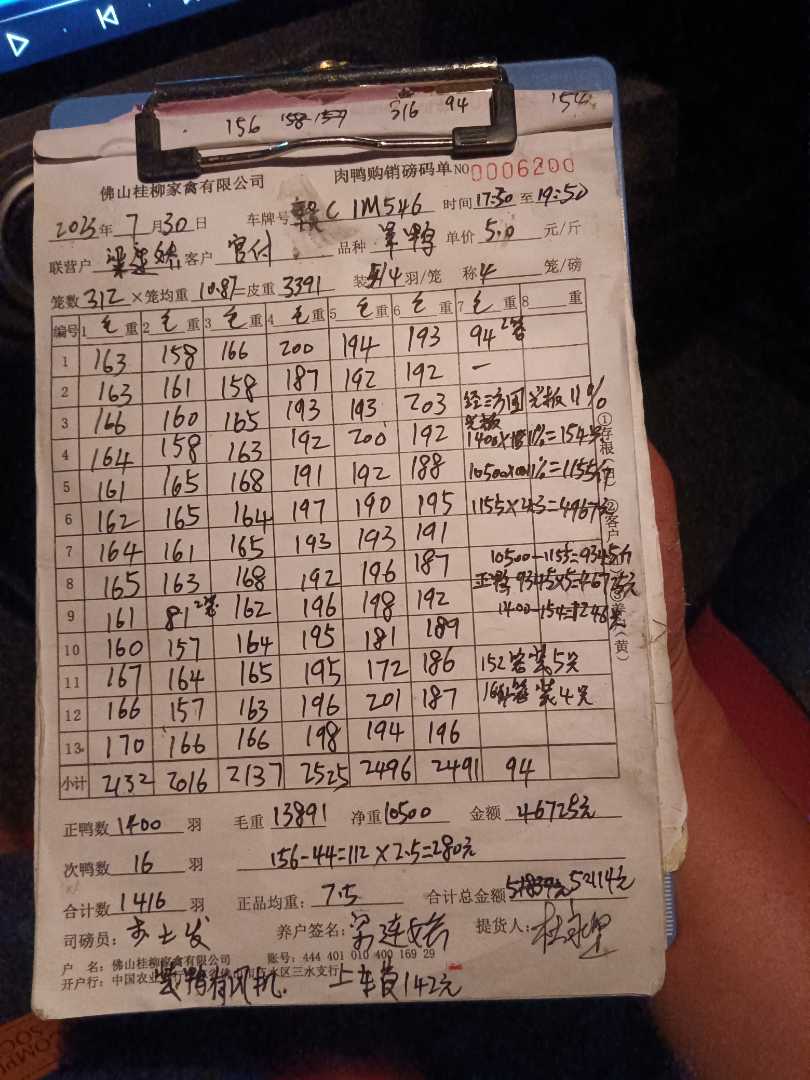 156 158-159 316 94 154
佛山桂柳家禽有限公司 肉鸭购销磅码单 NO 0006200
2025年 7月30日 车牌号 赣C 1M546 时间17:30至19:50
联营户 客户 官付 品种 单价 5.0 元/斤
笼数 312 ×笼均重 10.87=皮重 3391 装 5/4 羽/笼 称 4 笼/磅
编号 1 毛重 2 毛重 3 毛重 4 毛重 5 毛重 6 毛重 7 毛重 8 重
1 163 158 166 200 194 193 94 2笼
2 163 161 158 187 192 192 一
3 166 160 165 193 193 203 经三方同 光板11%
4 164 158 163 192 200 192 光板 1400×11%=154只
5 161 165 168 191 192 188 10500×11%=1155斤
6 162 165 164 197 190 195 1155×4.3=4967元
7 164 161 165 193 193 191
8 165 163 168 192 196 187 10500-1155=9345斤
正鸭 9345×5=46725元
9 161 81 2笼 162 196 198 192 1400-154=1246只
10 160 157 164 195 181 189
11 167 164 165 195 172 186 152笼装5只
12 166 157 163 196 201 187 164笼装4只
13 170 166 166 198 194 196
小计 2132 2016 2137 2525 2496 2491 94
①存根 ②客户 (黄)
正鸭数 1400 羽 毛重 13891 净重 10500 金额 46725元
次鸭数 16 羽 156-44=112×2.5=280元
合计数 1416 羽 正品均重: 7.5 合计总金额 51839元 52114元
司磅员: 养户签名: 梁连好 提货人:
户 名: 佛山桂柳家禽有限公司 账号: 444 401 010 400 169 29
开户行: 中国农业 三水区三水支行
装鸭有风机. 上车费142元